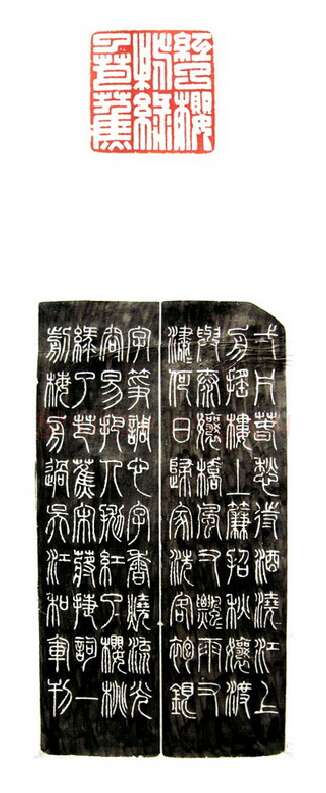 紅了櫻
桃綠
了芭蕉
弌片萅愁待酒澆江上
舟搖樓上簾招秋娘渡
與泰娘橋風又飄雨又
瀟何日歸家洗客袍銀
字笙調心字香燒流光
容易把人拋紅了櫻桃
綠了芭蕉宋蔣捷詞一
剪梅舟過吳江和軍刊